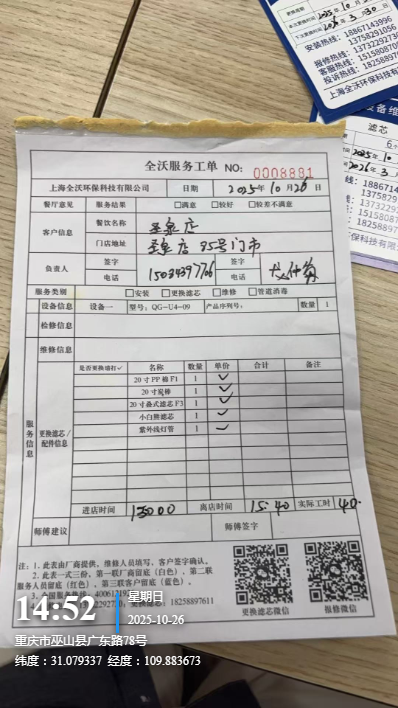 2025年10月2
2026年3月30日
安装热线：18867143996
13758291056
报修热线：13732292730
客服热线：15158087
投诉热线：18258897
上海全沃环保科技有限
滤芯
2025年10
2026年3
全沃服务工单 NO: 0008881
上海全沃环保科技有限公司 日期 2025年10月26日
餐厅意见 服务结果 □满意 □较好 □较差不满意
客户信息 餐饮名称
门店地址 店 95号门市
负责人 签字
电话 15034397706
服务类别 □安装 □更换滤芯 □维修 □管道消毒
设备信息 设备一 型号：QG-U4-09 产品序列号： 数量 1
检修信息
维修信息
服务信息
更换滤芯/配件信息
是否更换请打✓ 名称 数量 单价 合计 备注
20寸PP棉F1 1 ✓
20寸炭棒 1 ✓
20寸叠式滤芯F3 1 ✓
小白熊滤芯 1 ✓
紫外线灯管 1 ✓
进店时间 13000 离店时间 15:40 实际工时 40.
师傅建议 师傅签字
注：1. 此表由厂商提供，维修人员填写，客户签字确认。
2. 此表一式三份，第一联厂商留底（白色），第二联
服务人员留底（红色），第三联客户留底（蓝色）。
更换滤芯微信 报修微信
14:52 星期日
2025-10-26
重庆市巫山县广东路78号
纬度：31.079337 经度：109.883673